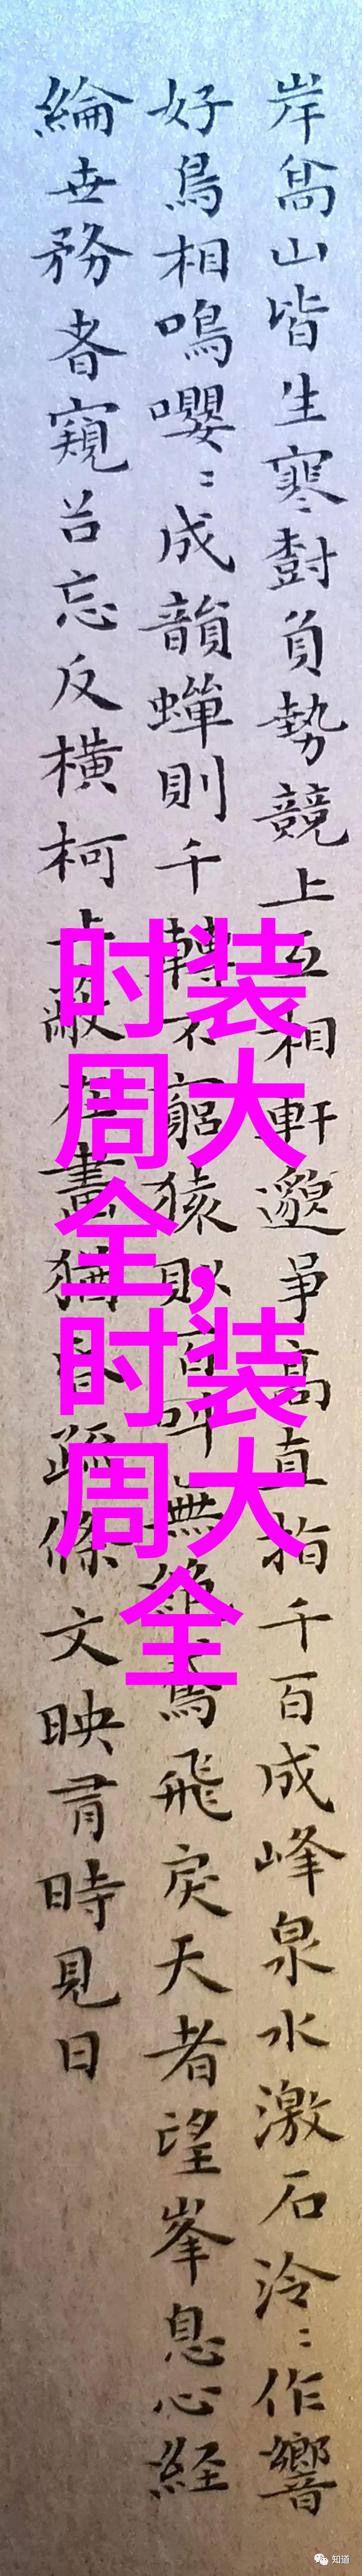 岸髙山皆生寒樹負勢競上互相軒邈爭高直指千百成峰泉水激石泠〻作響
好鳥相鳴嚶〻成韻蟬則千轉不窮猿則百叫無絶鳶飛戾天者望峯息心経
綸世務者窺谷忘反横柯上蔽在晝猶昏疏條文映有時見日
时装
周大
全,
时装
周大
全
知道